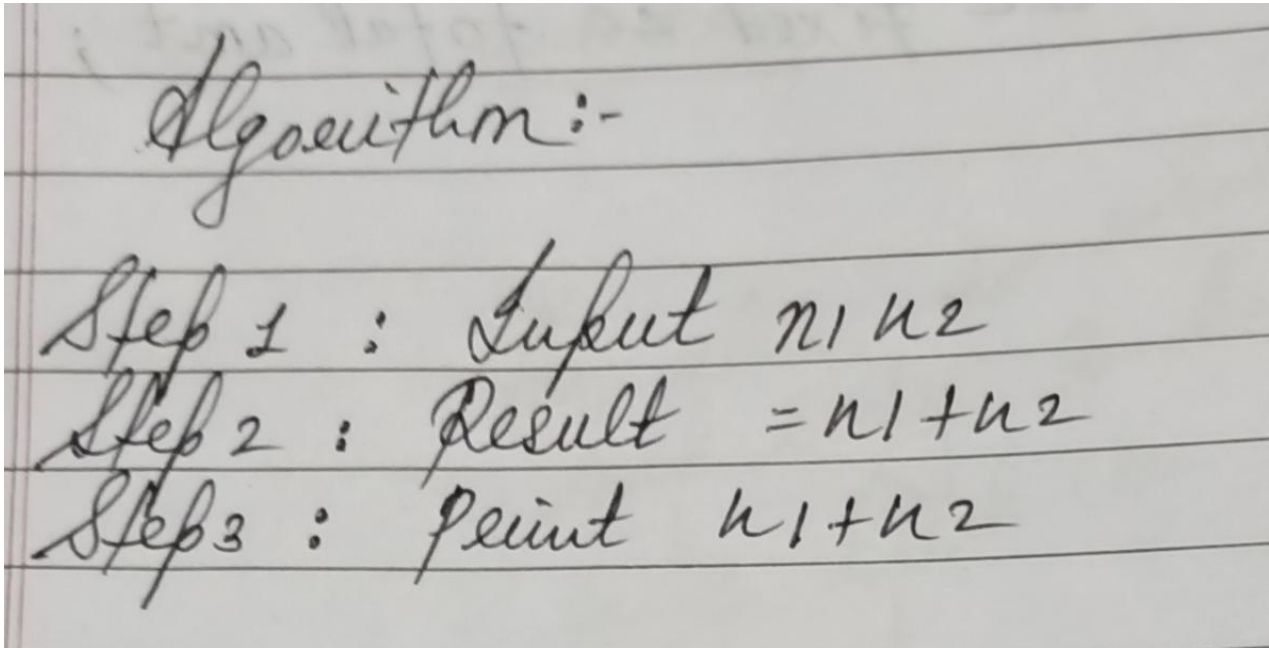 Algorithm :-
Step 1 : Input n1 n2
Step 2 : Result = n1+n2
Step3 : Print n1+n2